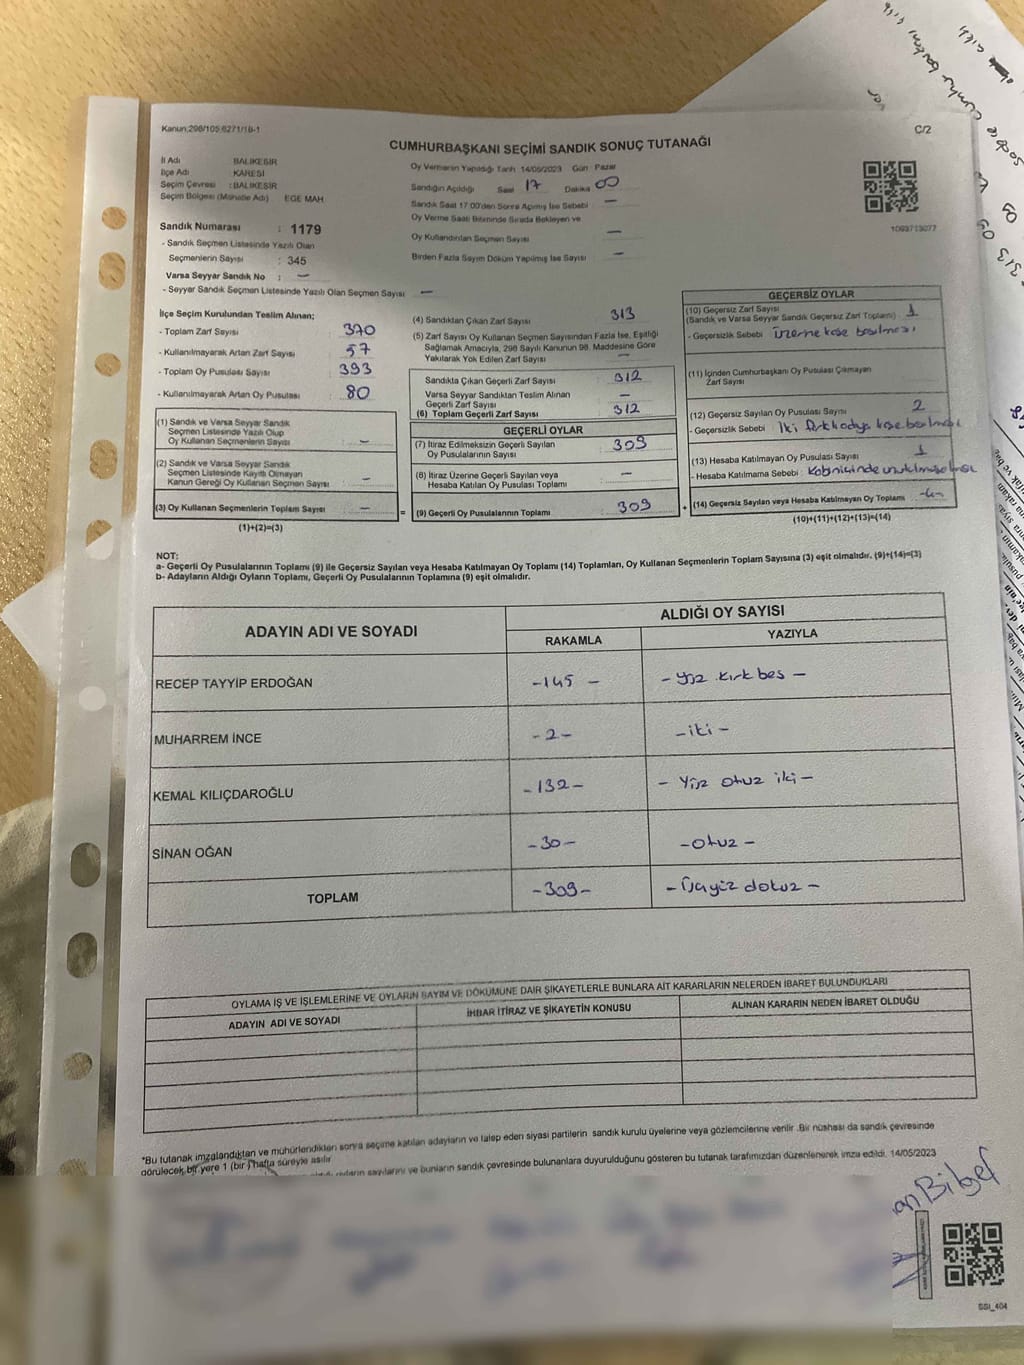 Kanun;298/105,6271/16-1
C/2
CUMHURBAŞKANI SEÇİMİ SANDIK SONUÇ TUTANAĞI
İl Adı BALIKESİR
İlçe Adı KARESİ
Seçim Çevresi : BALIKESİR
Seçim Bölgesi (Mahalle Adı) EGE MAH
Sandık Numarası : 1179
- Sandık Seçmen Listesinde Yazılı Olan
Seçmenlerin Sayısı : 345
Varsa Seyyar Sandık No : —
- Seyyar Sandık Seçmen Listesinde Yazılı Olan Seçmen Sayısı —
Oy Vermenin Yapıldığı Tarih 14/05/2023 Gün Pazar
Sandığın Açıldığı Saat 17 Dakika 00
Sandık Saat 17:00'den Sonra Açılmış İse Sebebi —
Oy Verme Saati Bitiminde Sırada Bekleyen ve
Oy Kullandırılan Seçmen Sayısı —
Birden Fazla Sayım Döküm Yapılmış İse Sayısı —
1093713077
İlçe Seçim Kurulundan Teslim Alınan;
- Toplam Zarf Sayısı 370
- Kullanılmayarak Artan Zarf Sayısı 57
- Toplam Oy Pusulası Sayısı 393
- Kullanılmayarak Artan Oy Pusulası 80
(1) Sandık ve Varsa Seyyar Sandık
Seçmen Listesinde Yazılı Olup
Oy Kullanan Seçmenlerin Sayısı —
(2) Sandık ve Varsa Seyyar Sandık
Seçmen Listesinde Kayıtlı Olmayan
Kanun Gereği Oy Kullanan Seçmen Sayısı —
(3) Oy Kullanan Seçmenlerin Toplam Sayısı —
(1)+(2)=(3)
(4) Sandıktan Çıkan Zarf Sayısı 313
(5) Zarf Sayısı Oy Kullanan Seçmen Sayısından Fazla İse, Eşitliği
Sağlamak Amacıyla, 298 Sayılı Kanunun 98. Maddesine Göre
Yakılarak Yok Edilen Zarf Sayısı —
Sandıkta Çıkan Geçerli Zarf Sayısı 312
Varsa Seyyar Sandıktan Teslim Alınan
Geçerli Zarf Sayısı —
(6) Toplam Geçerli Zarf Sayısı 312
GEÇERLİ OYLAR
(7) İtiraz Edilmeksizin Geçerli Sayılan
Oy Pusulalarının Sayısı 309
(8) İtiraz Üzerine Geçerli Sayılan veya
Hesaba Katılan Oy Pusulası Toplamı —
= (9) Geçerli Oy Pusulalarının Toplamı 309 +
GEÇERSİZ OYLAR
(10) Geçersiz Zarf Sayısı
(Sandık ve Varsa Seyyar Sandık Geçersiz Zarf Toplamı) 1
- Geçersizlik Sebebi üzerine kaşe basılması
(11) İçinden Cumhurbaşkanı Oy Pusulası Çıkmayan
Zarf Sayısı
(12) Geçersiz Sayılan Oy Pusulası Sayısı 2
- Geçersizlik Sebebi İki farklı adya kaşe basılması
(13) Hesaba Katılmayan Oy Pusulası Sayısı 1
- Hesaba Katılmama Sebebi Kabin içinde unutulmuş olması
(14) Geçersiz Sayılan veya Hesaba Katılmayan Oy Toplamı -4-
(10)+(11)+(12)+(13)=(14)
NOT:
a- Geçerli Oy Pusulalarının Toplamı (9) ile Geçersiz Sayılan veya Hesaba Katılmayan Oy Toplamı (14) Toplamları, Oy Kullanan Seçmenlerin Toplam Sayısına (3) eşit olmalıdır. (9)+(14)=(3)
b- Adayların Aldığı Oyların Toplamı, Geçerli Oy Pusulalarının Toplamına (9) eşit olmalıdır.
ADAYIN ADI VE SOYADI
ALDIĞI OY SAYISI
RAKAMLA YAZIYLA
RECEP TAYYİP ERDOĞAN -145- - Yüz kırk beş -
MUHARREM İNCE -2- -iki-
KEMAL KILIÇDAROĞLU -132- - Yüz otuz iki -
SİNAN OĞAN -30- -Otuz-
TOPLAM -309- -Üçyüz dokuz-
OYLAMA İŞ VE İŞLEMLERİNE VE OYLARIN SAYIM VE DÖKÜMÜNE DAİR ŞİKAYETLERLE BUNLARA AİT KARARLARIN NELERDEN İBARET BULUNDUKLARI
ADAYIN ADI VE SOYADI İHBAR İTİRAZ VE ŞİKAYETİN KONUSU ALINAN KARARIN NEDEN İBARET OLDUĞU
*Bu tutanak imzalandıktan ve mühürlendikten sonra seçime katılan adayların ve talep eden siyasi partilerin sandık kurulu üyelerine veya gözlemcilerine verilir. Bir nüshası da sandık çevresinde
görülecek bir yere 1 (bir) hafta süreyle asılır
oyların sayılarını ve bunların sandık çevresinde bulunanlara duyurulduğunu gösteren bu tutanak tarafımızdan düzenlenerek imza edildi. 14/05/2023
SSI_404